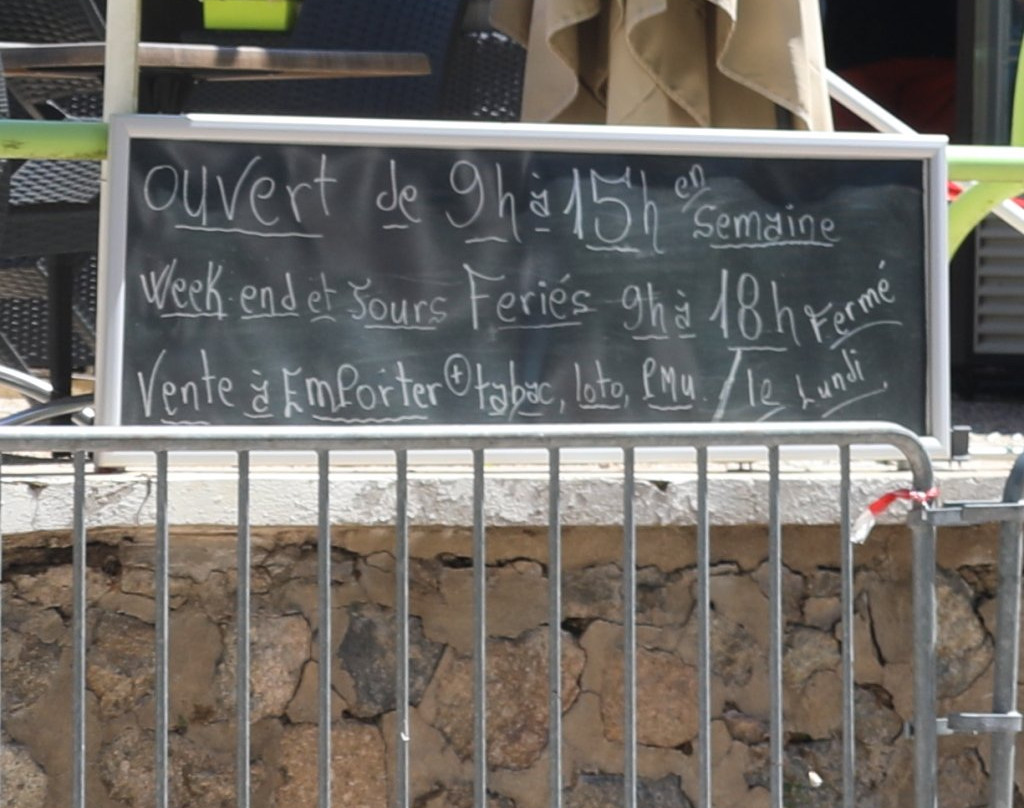 ouvert de 9h à 15h en semaine
Week end et Jours Feriés 9h à 18h Fermé
Vente à EmPorter + tabac, loto, PMu. / le Lundi.